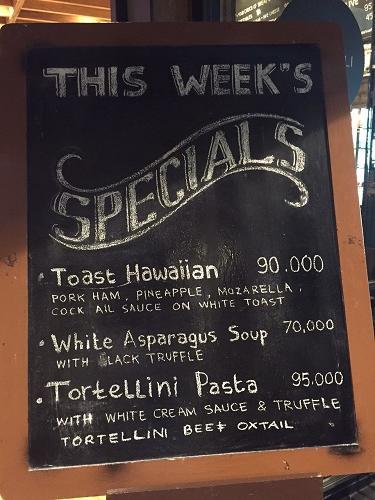 THIS WEEK"S
SPECIALS
• Toast Hawaiian 90.000
PORK HAM, PINEAPPLE, MOZARELLA,
COCK AIL SAUCE ON WHITE TOAST
• White Asparagus Soup 70,000
WITH LACK TRUFFLE
• Tortellini Pasta 95.000
WITH WHITE CREAM SAUCE & TRUFFLE
TORTELLINI BEEF OXTAIL